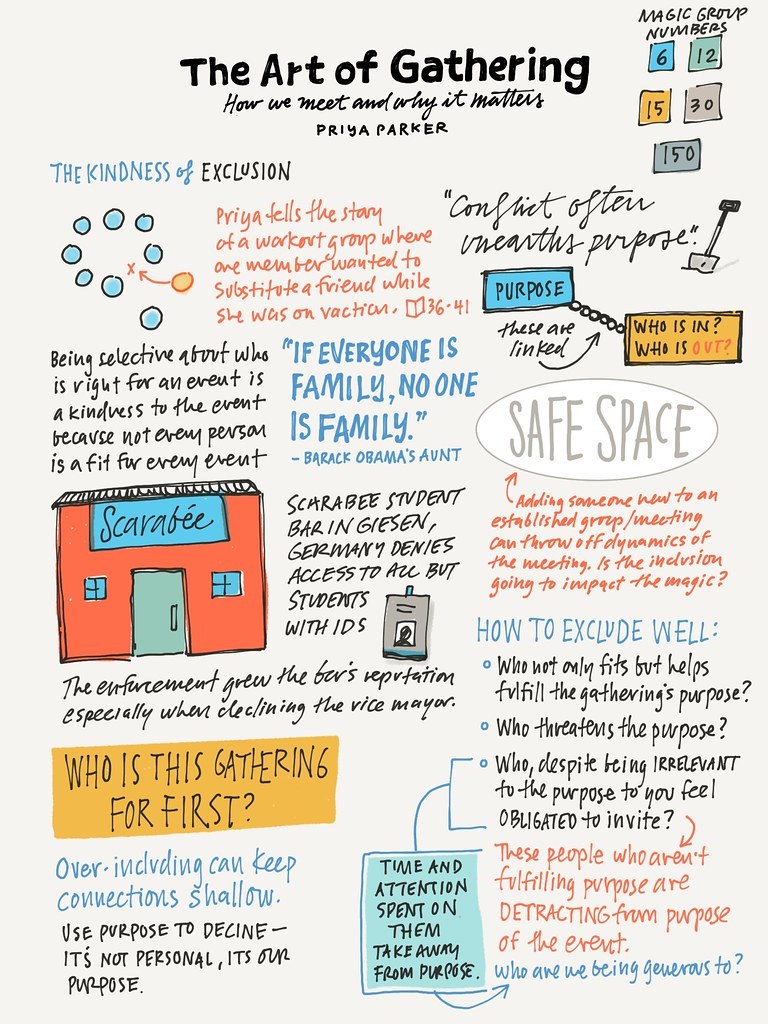 MAGIC GROUP
NUMBERS
6 12
15 30
150
The Art of Gathering
How we meet and why it matters
PRIYA PARKER
THE KINDNESS of EXCLUSION
x
Priya tells the story
of a workout group where
one member wanted to
substitute a friend while
she was on vaction. 36-41
"Conflict often
unearths purpose".
PURPOSE
these are
linked
WHO IS IN?
WHO IS OUT?
Being selective about who
is right for an event is
a kindness to the event
because not every person
is a fit for every event
"IF EVERYONE IS
FAMILY, NO ONE
IS FAMILY."
- BARACK OBAMA'S AUNT
SAFE SPACE
Adding someone new to an
established group/meeting
can throw off dynamics of
the meeting. Is the inclusion
going to impact the magic?
Scarabée
SCARABEE STUDENT
BAR IN GIESEN,
GERMANY DENIES
ACCESS TO ALL BUT
STUDENTS
WITH IDS
The enforcement grew the bar's reputation
especially when declining the vice mayor.
HOW TO EXCLUDE WELL:
Who not only fits but helps
fulfill the gathering's purpose?
Who threatens the purpose?
Who, despite being IRRELEVANT
to the purpose to you feel
OBLIGATED to invite?
These people who aren't
fulfilling purpose are
DETRACTING from purpose
of the event.
who are we being generous to?
TIME AND
ATTENTION
SPENT ON
THEM
TAKE AWAY
FROM PURPOSE.
WHO IS THIS GATHERING
FOR FIRST?
Over-including can keep
connections shallow.
USE PURPOSE TO DECINE —
IT'S NOT PERSONAL, ITS OUR
PURPOSE.